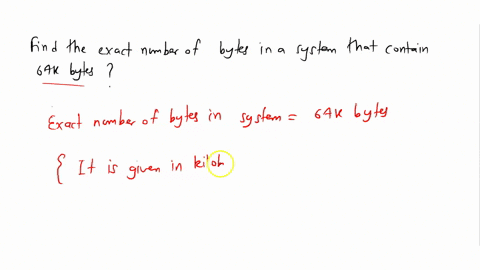 Find the exact number of bytes in a system that contain
64K bytes ?
Exact number of bytes in system = 64K bytes
{ It is given in kiloh